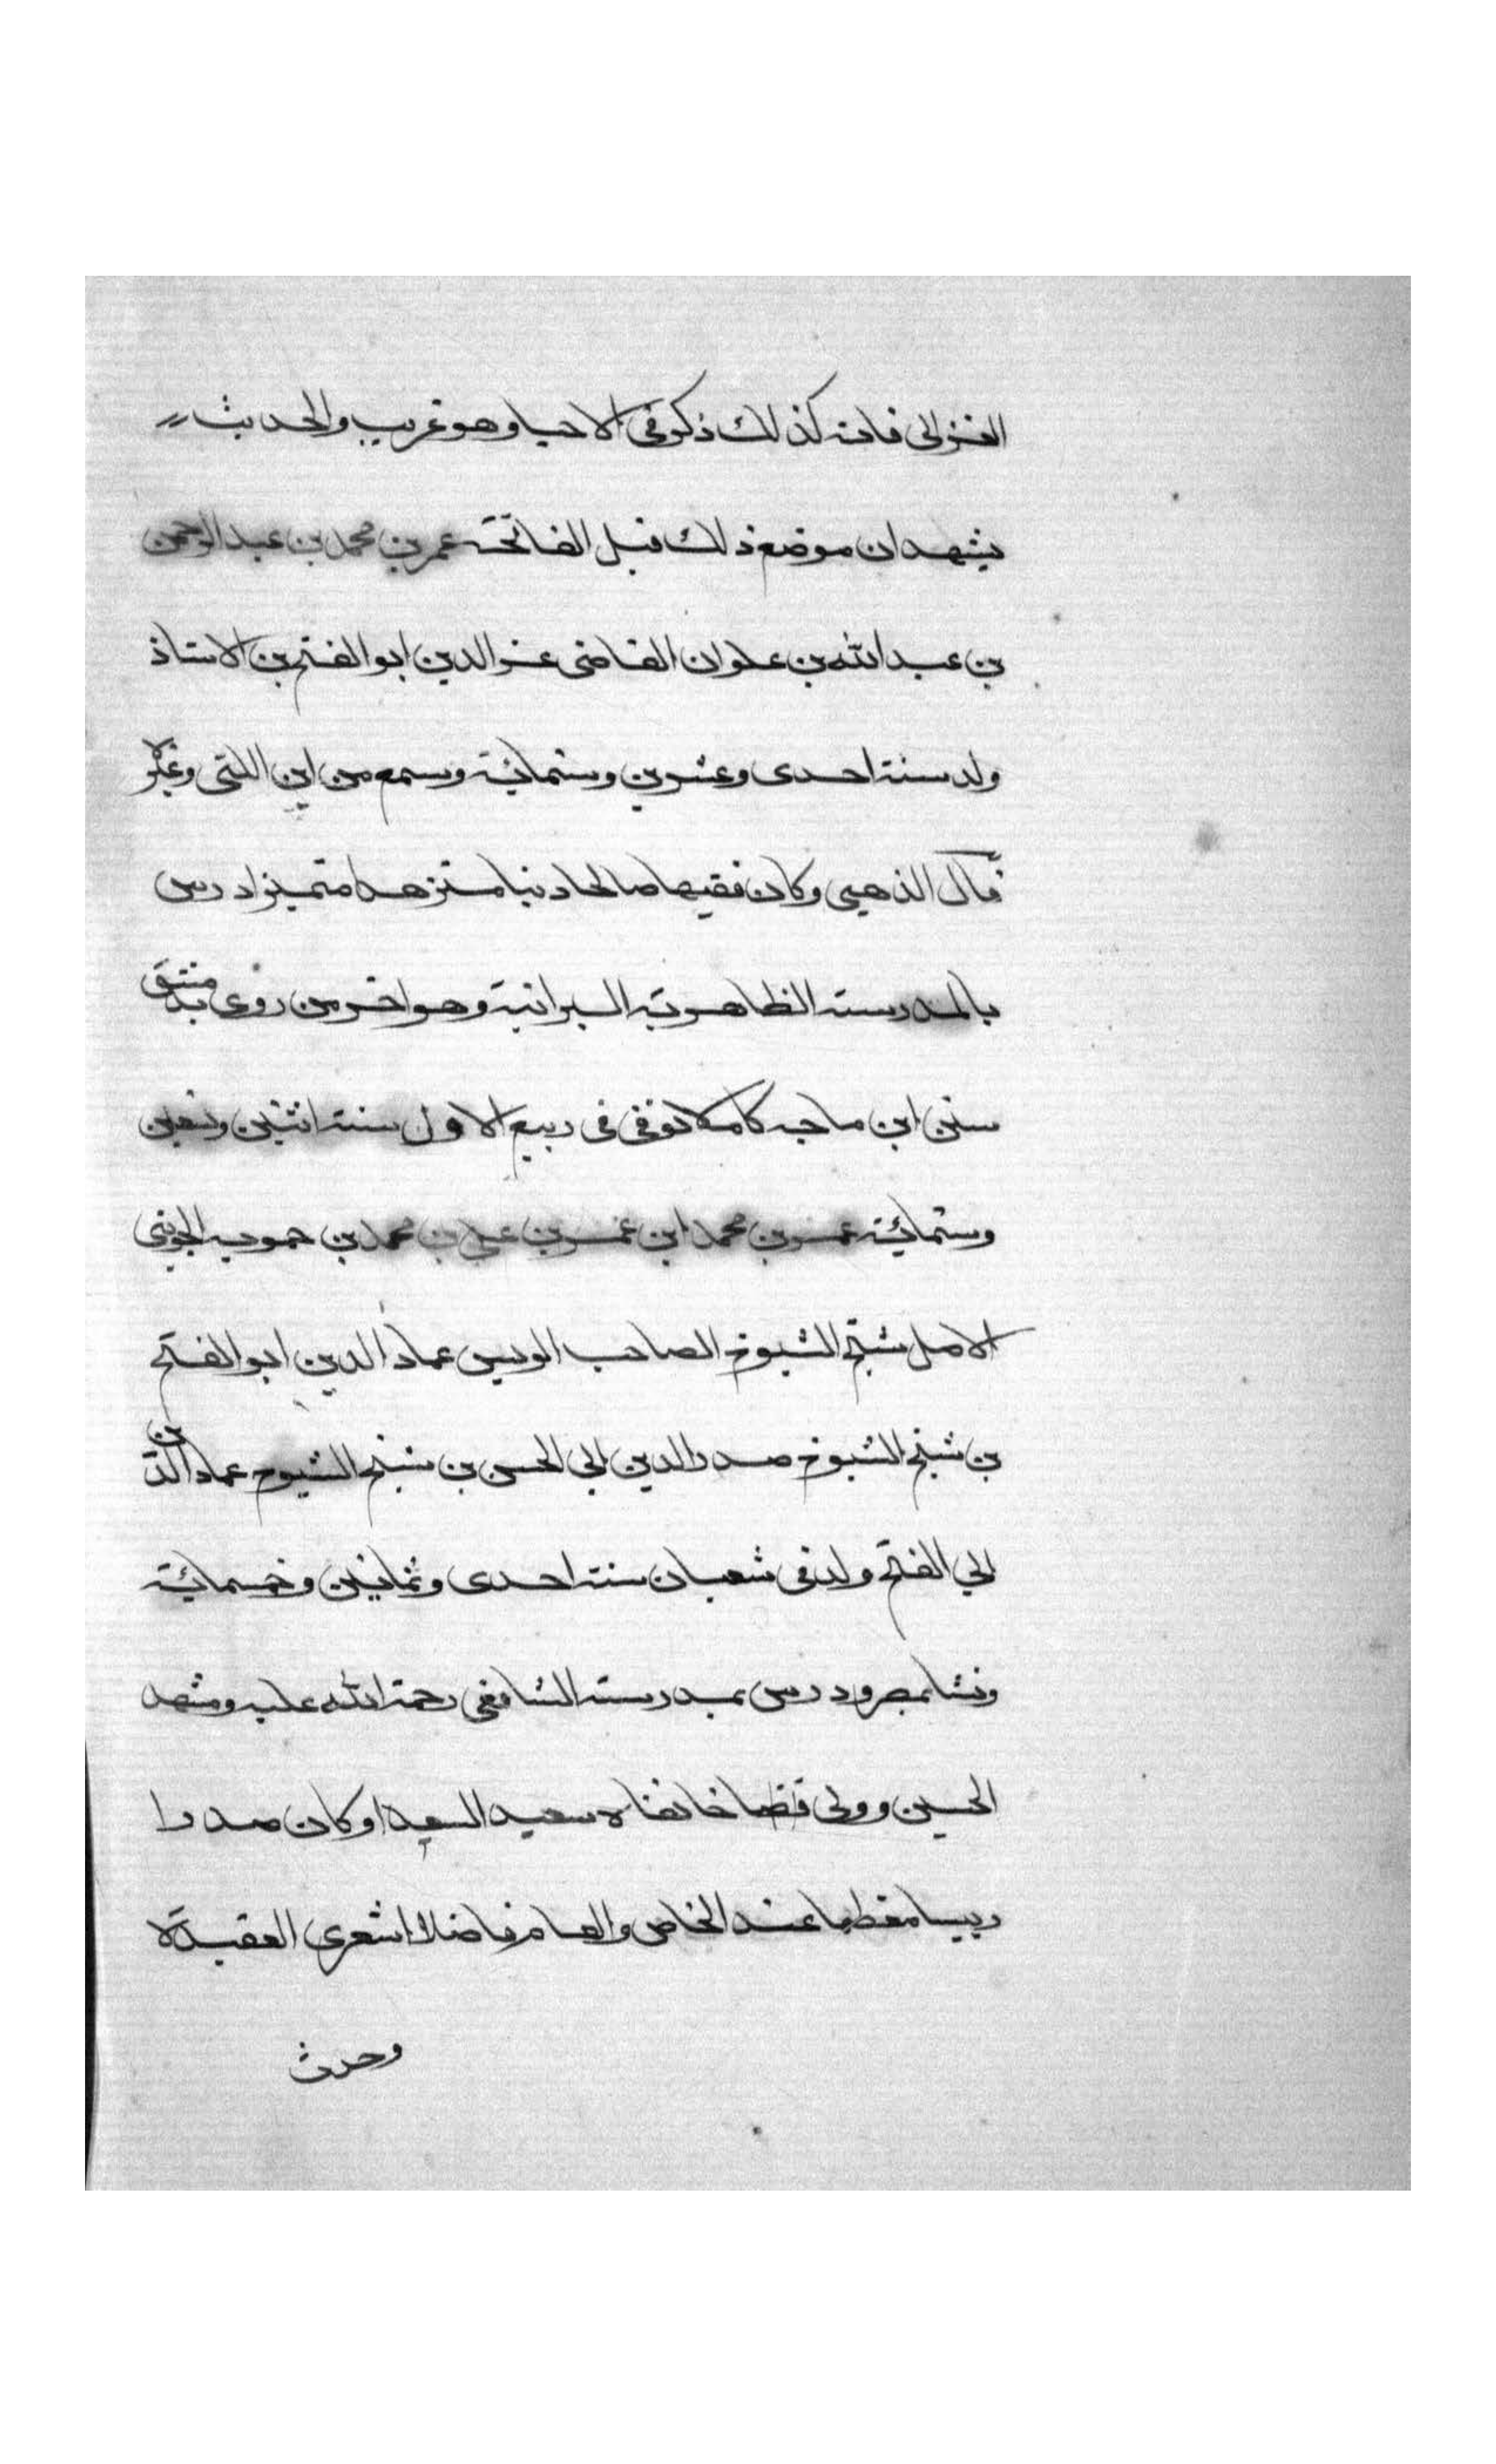 الغزالى فانه كذلك ذكر فى الاحيا وهو غريب والحديث
يشهد ان موضع ذلك قبل الفاتحة عمر بن محمد بن عبد الرحمن
بن عبد الله بن علوان القاضى عز الدين ابو الفتح بن الاستاذ
ولد سنة احدى وعشرين وستمائة وسمع من ابن اللتى وغيره
قال الذهبي وكان فقيها صالحا دينا متنزها متميزا درس
بالمدرسة الظاهرية البرانية وهو اخر من روى بدمشق
سنن ابن ماجه كاملا توفى فى ربيع الاول سنة اثنتين وتسعين
وستمائة عمر بن محمد ابن عمر بن علي بن محمد بن حمويه الجوينى
الامل شيخ الشيوخ الصاحب الرييس عماد الدين ابو الفتح
بن شيخ الشيوخ صدر الدين ابي الحسن بن شيخ الشيوخ عماد الدين
ابي الفتح ولد فى شعبان سنة احدى وثمانين وخمسمائة
ونشا بمصر ودرس بمدرسة الشافعى رحمة الله عليه ومشهد
الحسين وولى قضا خانقاه سعيد السعدا وكان صدرا
رييسا معظما عند الخاص والعام فاضلا اشعرى العقيدة
وحدث